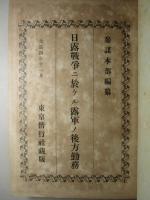 參謀本部編纂
日露戰爭ニ於ケル露軍ノ後方勤務
東京偕行社藏版